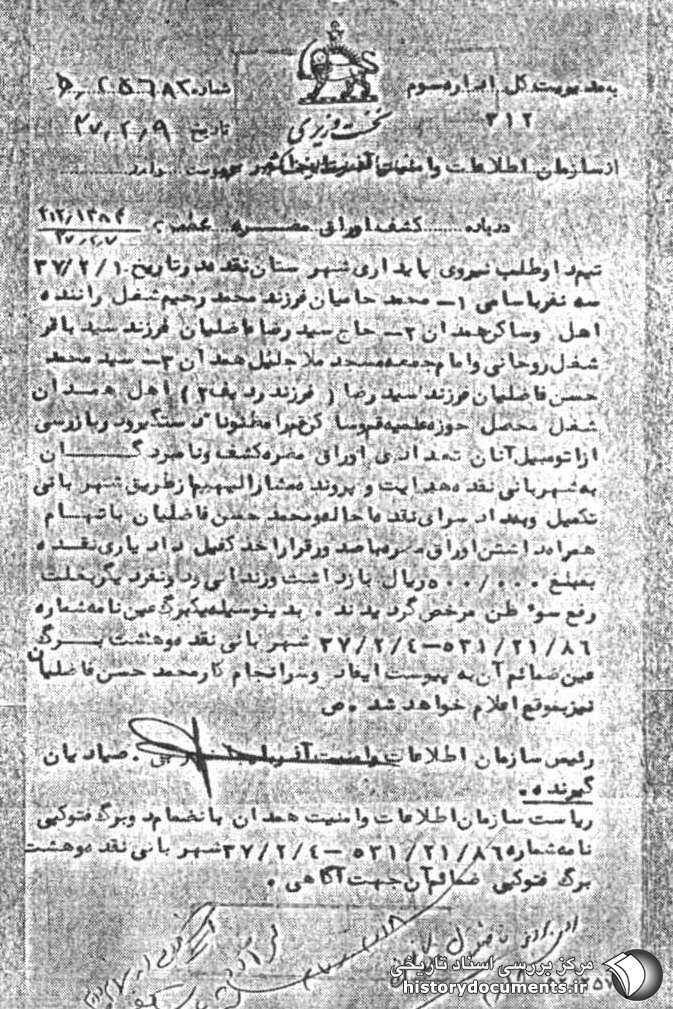 نخست وزیری
به مدیریت کل اداره سوم
شماره
۳۱۲
تاریخ
از سازمان اطلاعات و امنیت
درباره کشف اوراق مضره
۳۷/۲/۷
تیم داوطلب نیروی پایداری شهرستان نقده در تاریخ ۳۷/۲/۱
سه نفر باسامی ۱- محمد حامیان فرزند محمد رحیم شغل راننده
اهل وساکن همدان ۲- حاج سید رضا فاضلیان فرزند سید باقر
شغل روحانی و امام جمعه مسجد ملا جلیل همدان ۳- سید محمد
حسن فاضلیان فرزند سید رضا ( فرزند ردیف ۲ ) اهل همدان
شغل محصل حوزه علمیه قم وساکن قم را مظنونا دستگیر و بازرسی
از اتومبیل آنان تعدادی اوراق مضره کشف ونامبردگان
به شهربانی نقده هدایت و پرونده مشارالیهم از طریق شهربانی
تکمیل وبه دادسرای نقده احاله و محمد حسن فاضلیان باتهام
همراه داشتن اوراق مضره با صدور قرار اخذ کفیل دادیاری نقده
بمبلغ ۵۰۰/۰۰۰ ریال بازداشت و زندانی و دو نفر دیگر بعلت
رفع سوء ظن مرخص گردیدند . بدینوسیله یکبرگ عین نامه شماره
۵۳۱/۲۱/۸۶-۳۷/۲/۴ شهربانی نقده و هشت برگ
عین ضمائم آن به پیوست ایفاد وسرانجام کار محمد حسن فاضلیان
نیز بموقع اعلام خواهد شد . ص
رئیس سازمان اطلاعات و امنیت آذربایجان غربی . صیادیان
گیرنده .
ریاست سازمان اطلاعات و امنیت همدان بانضمام دو برگ فتوکپی
نامه شماره ۵۳۱/۲۱/۸۶-۳۷/۲/۴ شهربانی نقده و هشت
برگ فتوکپی ضمائم آن جهت آگاهی .
مرکز بررسی اسناد تاریخی
historydocuments.ir